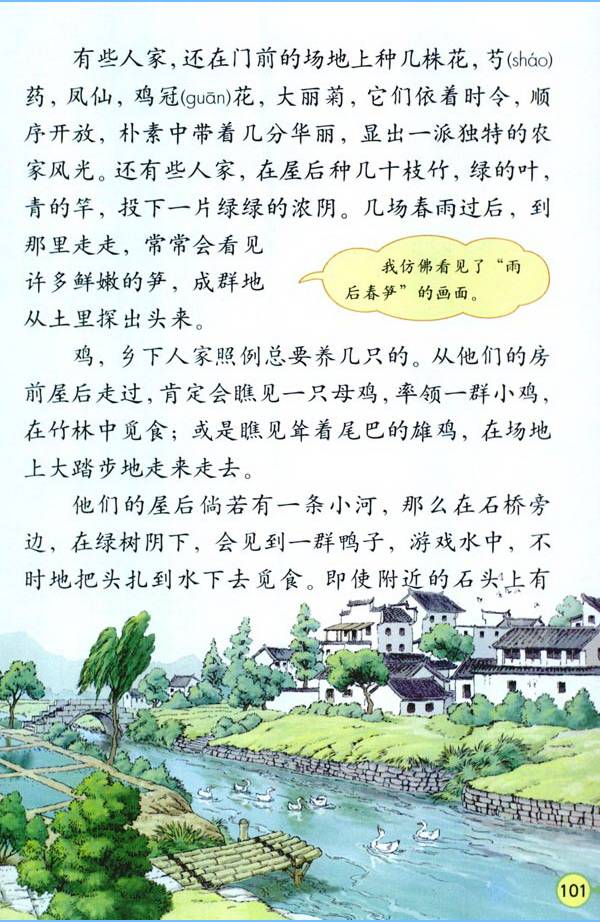 有些人家，还在门前的场地上种几株花，芍(sháo)
药，凤仙，鸡冠(guān)花，大丽菊，它们依着时令，顺
序开放，朴素中带着几分华丽，显出一派独特的农
家风光。还有些人家，在屋后种几十枝竹，绿的叶，
青的竿，投下一片绿绿的浓阴。几场春雨过后，到
那里走走，常常会看见
许多鲜嫩的笋，成群地
从土里探出头来。
我仿佛看见了“雨
后春笋”的画面。
鸡，乡下人家照例总要养几只的。从他们的房
前屋后走过，肯定会瞧见一只母鸡，率领一群小鸡，
在竹林中觅食；或是瞧见耸着尾巴的雄鸡，在场地
上大踏步地走来走去。
他们的屋后倘若有一条小河，那么在石桥旁
边，在绿树阴下，会见到一群鸭子，游戏水中，不
时地把头扎到水下去觅食。即使附近的石头上有
101